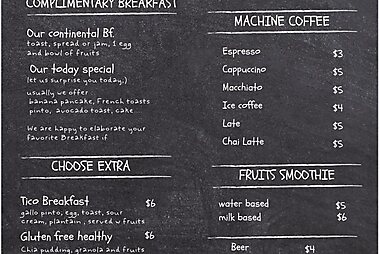 COMPLIMENTARY BREAKFAST
Our continental Bf.
toast, spread or jam, 1 egg
and bowl of fruits
Our today special
(let us surprise you today.)
usually we offer :
banana pancake, French toasts
pinto, avocado toast, cake...
We are happy to elaborate your
favorite Breakfast if
CHOOSE EXTRA
Tico Breakfast $6
gallo pinto, egg, toast, sour
cream, plantain , served w fruits
Gluten free healthy $6
Chia pudding, granola and fruits
MACHINE COFFEE
Espresso $3
Cappuccino $5
Macchiato $5
Ice coffee $4
Late $5
Chai Latte $5
FRUITS SMOOTHIE
water based $5
milk based $6
Beer $4